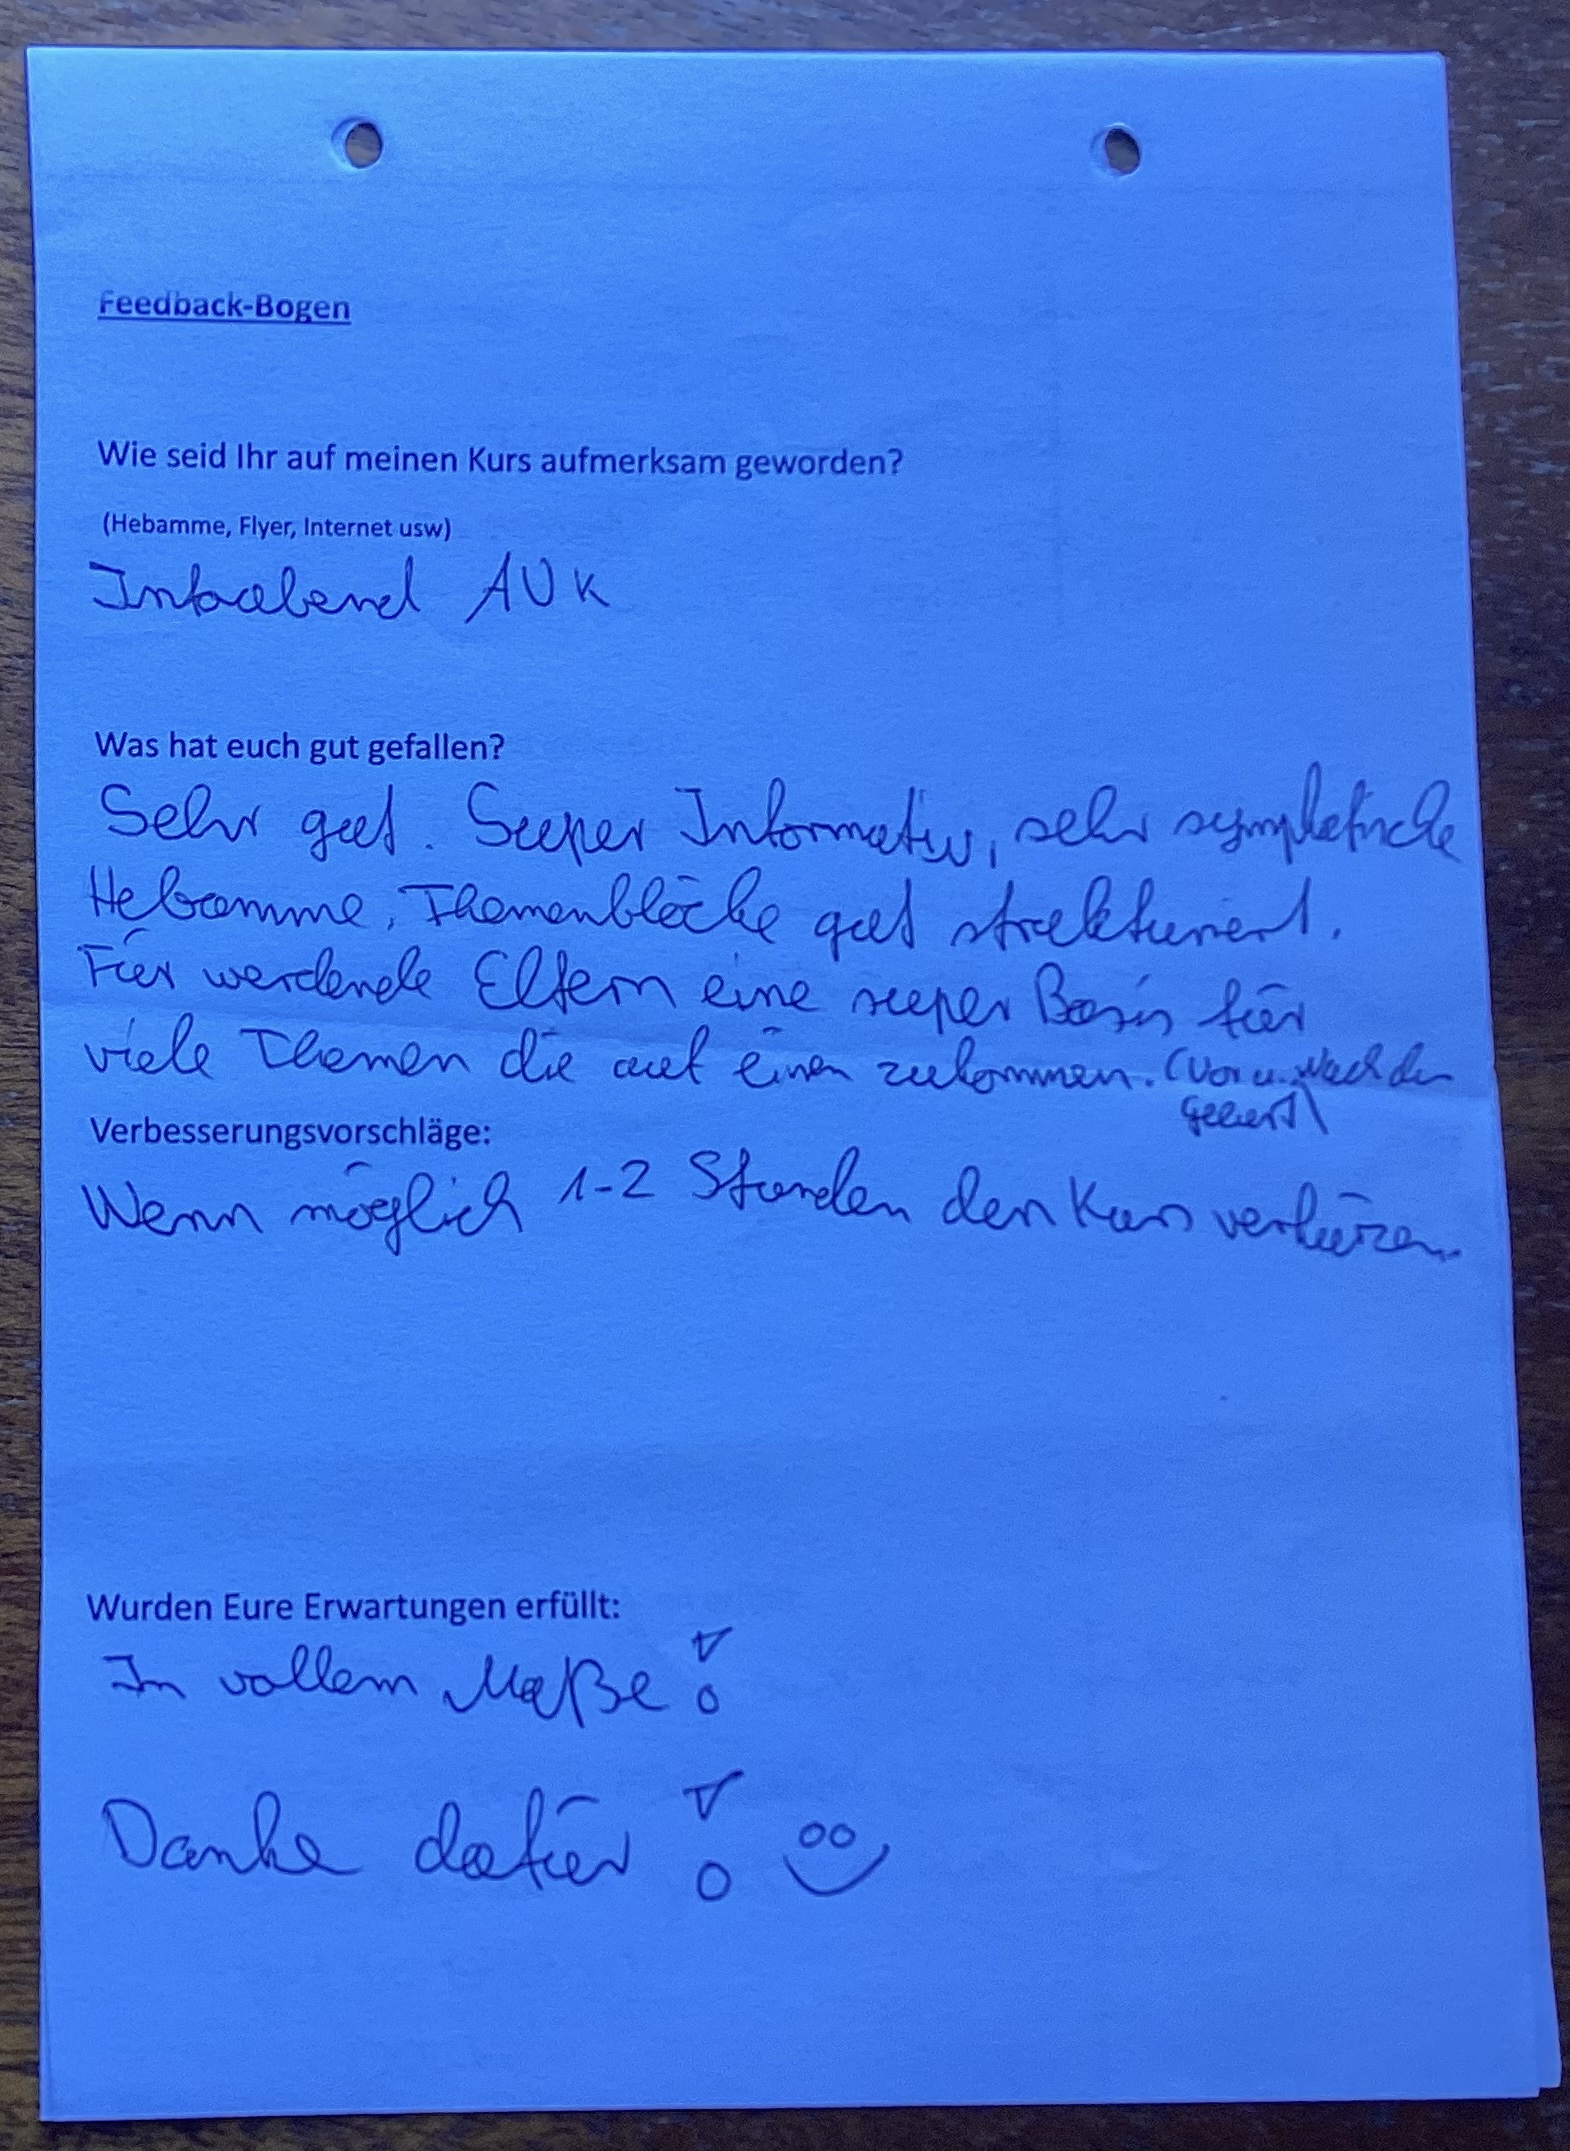 Feedback-Bogen
Wie seid Ihr auf meinen Kurs aufmerksam geworden?
(Hebamme, Flyer, Internet usw)
Infoabend AUK
Was hat euch gut gefallen?
Sehr gut. Super Informativ, sehr sympatische
Hebamme, Themenblöcke gut strukturiert.
Für werdende Eltern eine super Basis für
viele Themen die auf einen zukommen. (Vor u. Nach der
Geburt)
Verbesserungsvorschläge:
Wenn möglich 1-2 Stunden den Kurs verkürzen.
Wurden Eure Erwartungen erfüllt:
In vollem Maße!
Danke dafür!